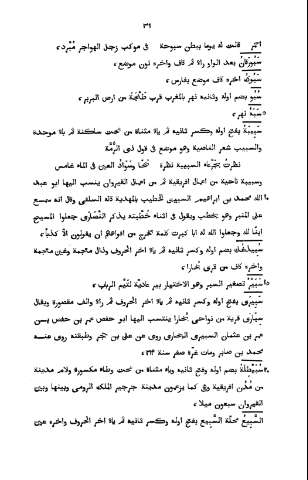 ٣٩
اخبر قالت له يوما ببطن سبوحة في موكب زجل الهواجر مُبْرِد،
سَبُورَقَان بعد الواو راء ثم قاف واخره نون موضع،
سَبُوكُ اخره كاف موضع بفارس،
سُبُو بضم اوله وثانيه نهر بالمغرب قرب طَنْجَة من ارض البربر،
سَبَة نهر،
سَبِيبَة بفتح اوله وكسر ثانيه ثم ياء مثناة من تحت ساكنة ثم باء موحدة
والسبيب شعر الناصية وهو موضع في قول ذي الرُّمَّة
نظرتُ بجَرْعاء السبيبة نظرة ضُحًا وسَوَادُ العين في الماء غامس
وسبيبة ناحية من اعمال افريقية ثم من اعمال القيروان ينسب اليها ابو عبد
الله محمد بن ابراهيم السبيبي الخطيب بالمهدية قاله السلفي وقال انه سمع
على المنبر وهو يخطب ويقول في اثناء خطبته يذكر النَّصَارَى جعلوا المسيح
ابنًا لله وجعلوا الله له ابا كبرت كلمة تخرج من افواههم ان يقولون الا كذبًا،
بفتح اوله وكسر ثانيه ثم ياء اخر الحروف وذال معجمة وغين معجمة
واخره كاف من قرى بخارا،
سُبَيْر تصغير السبر وهو الاختبار بير عادية لتَيْم الرباب،
سَبِيرَى بفتح اوله وكسر ثانيه ثم ياء اخر الحروف ثم راء والف مقصورة ويقال
سِبَارَى قرية من نواحي بخارا ينتسب اليها ابو حفص عمر بن حفص بن
عمر بن عثمان السبيري البخاري روى عن على بن حجر وطبقته روى عنه
محمد بن صابر ومات غرّة صفر سنة ٢٩٤،
سُبَيْطِلَة بضم اوله وفتح ثانيه وياء مثناة من تحت وطاء مكسورة ولام مدينة
من مُدُن افريقية وهى كما يزعمون مدينة جرجير الملك الرومي وبينها وبين
القيروان سبعون ميلا،
السَّبِيع محلّة السَّبِيع بفتح اوله وكسر ثانيه ثم ياء اخر الحروف واخره عين